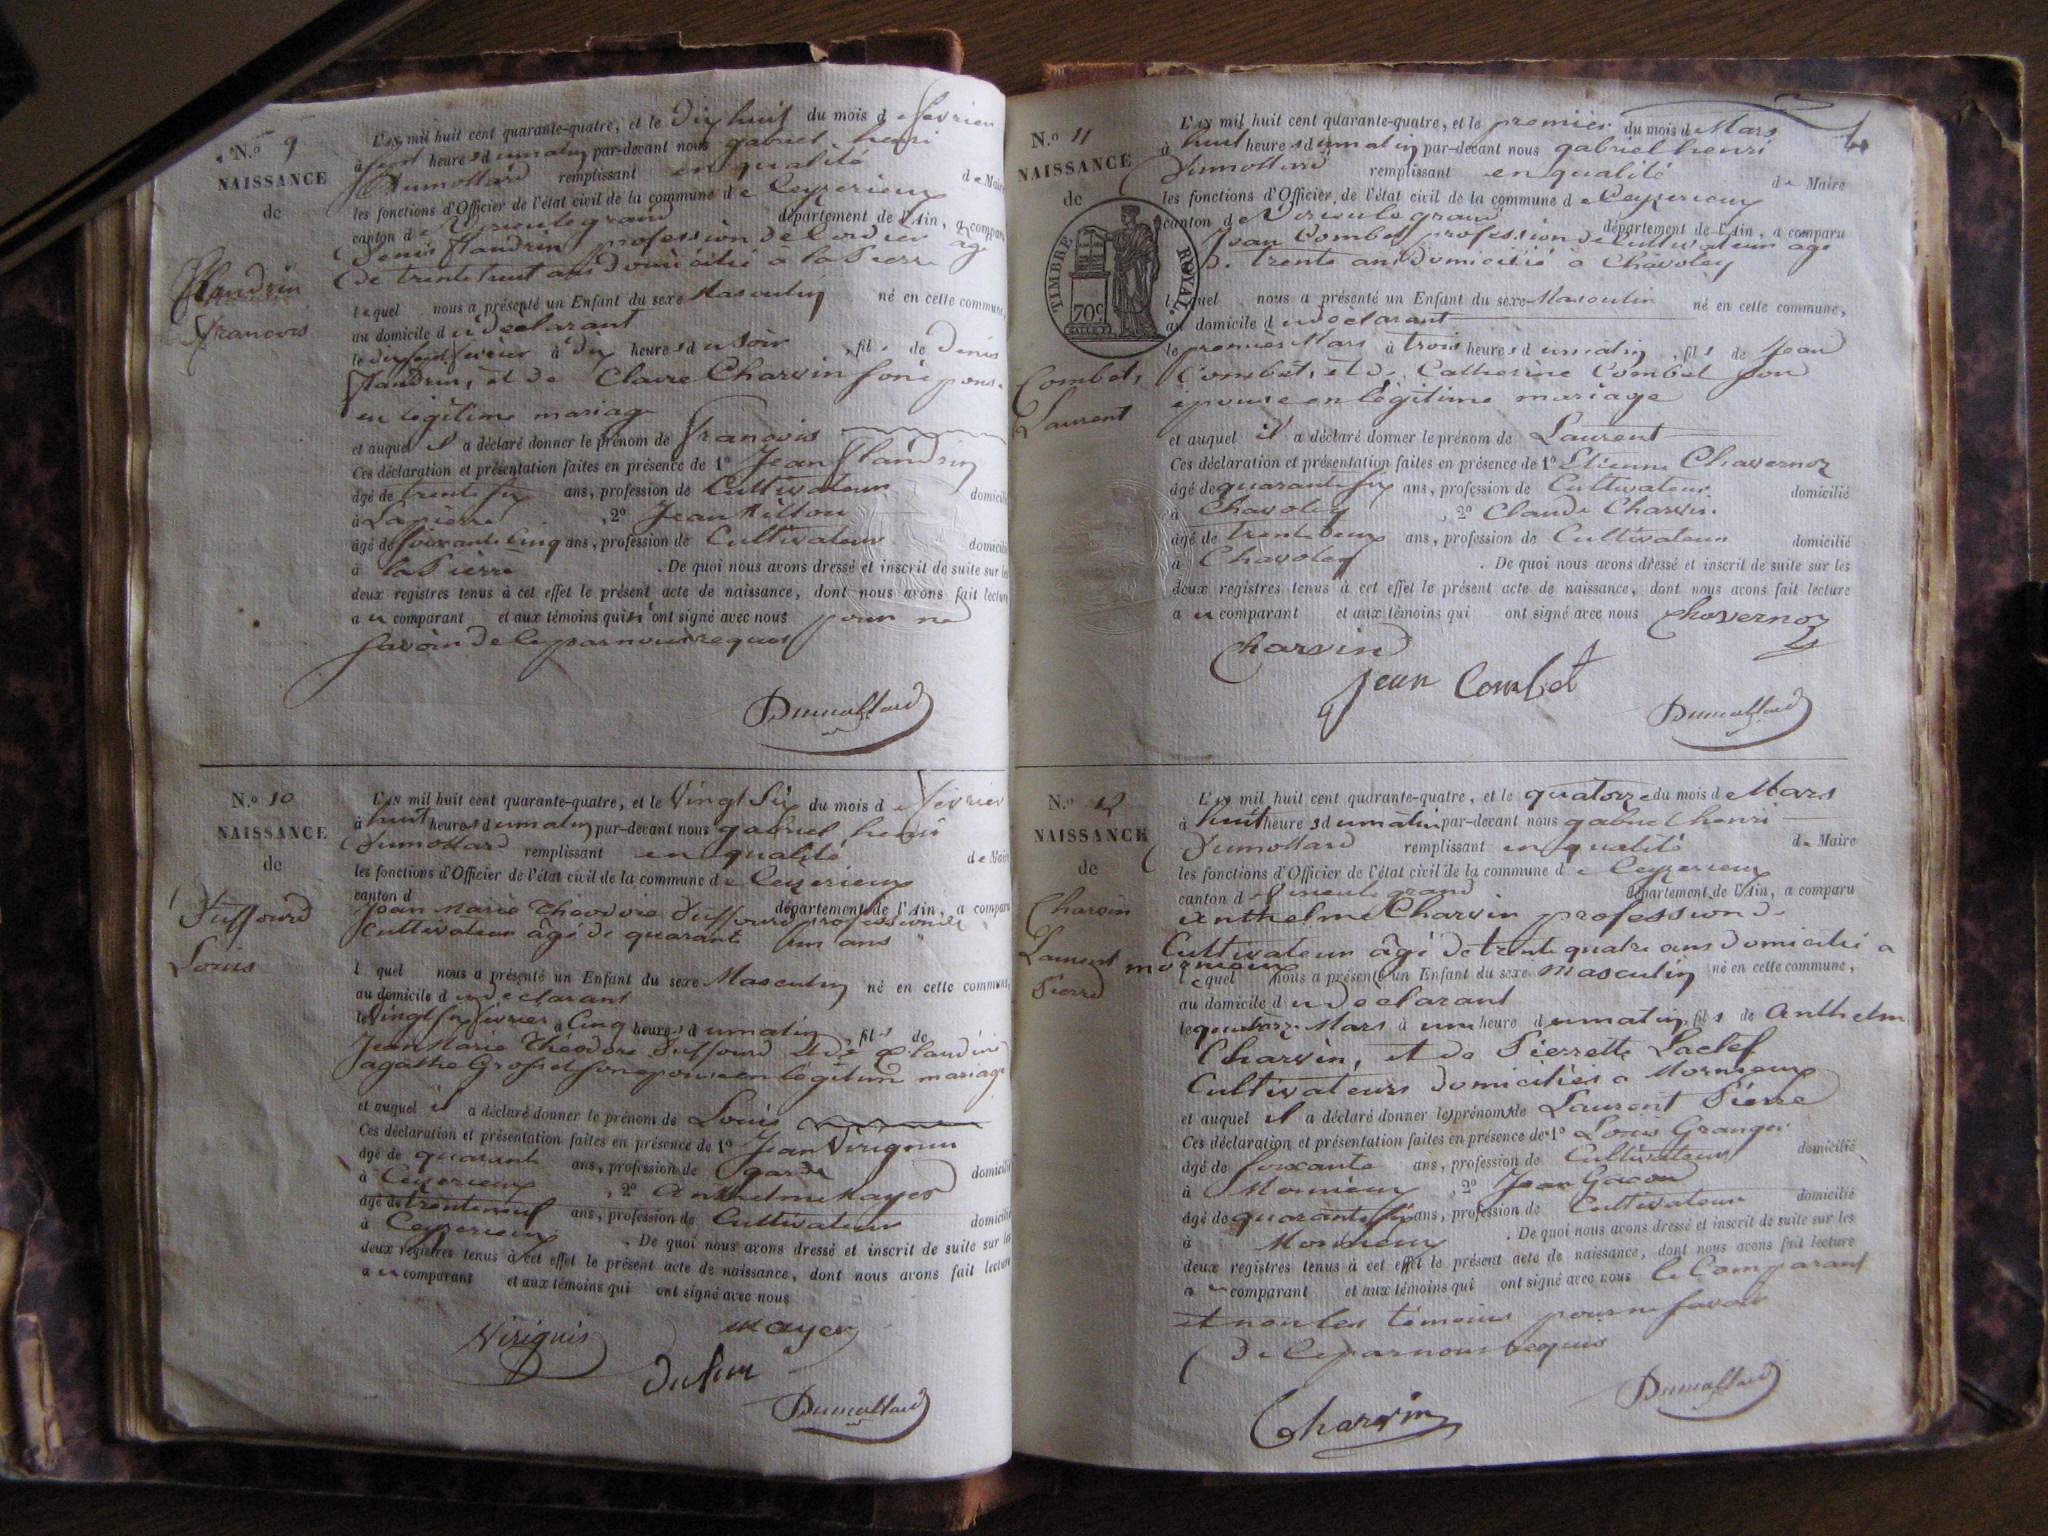 N.º 9
NAISSANCE
de
Flandrin
François
L'AN mil huit cent quarante-quatre, et le dix huit du mois de février
à sept heures du matin par-devant nous gabriel henri
Dumollard remplissant en qualité de Maire
les fonctions d'Officier de l'état civil de la commune de Ceyzerieux
canton de Virieu le grand département de l'Ain, a comparu
Denis Flandrin profession de Cordier agé
de trente huit ans domicilié a la Pierre
lequel nous a présenté un Enfant du sexe Masculin né en cette commune,
au domicile du déclarant
le dix sept février à dix heures du soir, fils de Denis
Flandrin, et de Claire Charvin son épouse
en légitime mariage
et auquel il a déclaré donner le prénom de François
Ces déclaration et présentation faites en présence de 1º Jean Flandrin
âgé de trente six ans, profession de Cultivateur domicilié
à Lapierre, 2º Jean
âgé de soixante cinq ans, profession de Cultivateur domicilié
à la Pierre. De quoi nous avons dressé et inscrit de suite sur les
deux registres tenus à cet effet le présent acte de naissance, dont nous avons fait lecture
au comparant et aux témoins qui n'ont signé avec nous pour ne
savoir de ce par nous requis
Dumollard
N.º 10
NAISSANCE
de
Duffourd
Louis
L'AN mil huit cent quarante-quatre, et le Vingt Six du mois de février
à huit heures du matin par-devant nous gabriel henri
Dumollard remplissant en qualité de Maire
les fonctions d'Officier de l'état civil de la commune de Ceyzerieux
canton d département de l'Ain, a comparu
Jean Marie Théodore Duffourd profession de
Cultivateur âgé de quarante un ans
l quel nous a présenté un Enfant du sexe Masculin né en cette commune,
au domicile du declarant
le Vingt six février à Cinq heures du matin, fils de
Jean Marie Théodore Duffourd et de Claudine
agathe Grosset son epouse en légitime mariage
et auquel il a déclaré donner le prénom de Louis
Ces déclaration et présentation faites en présence de 1º Jean Virignin
âgé de quarante ans, profession de garde domicilié
à Ceyzerieux, 2º Anthelme Mayer
âgé de trente neuf ans, profession de Cultivateur domicilié
à Ceyzerieux. De quoi nous avons dressé et inscrit de suite sur les
deux registres tenus à cet effet le présent acte de naissance, dont nous avons fait lecture
au comparant et aux témoins qui ont signé avec nous
mayer
Dumollard
N.º 11
NAISSANCE
de
TIMBRE ROYAL
70c
Combet,
Laurent
L'AN mil huit cent quarante-quatre, et le premier du mois de Mars
à huit heures du matin par-devant nous gabriel henri
Dumollard remplissant en qualité de Maire
les fonctions d'Officier de l'état civil de la commune de Ceyzerieux
canton de Virieu le grand département de l'Ain, a comparu
Jean Combet profession de Cultivateur agé
de trente ans domicilié a Chavoley
lequel nous a présenté un Enfant du sexe Masculin né en cette commune,
au domicile du déclarant
le premier Mars à trois heures du matin, fils de Jean
Combet, et de Catherine Combet son
epouse en légitime mariage
et auquel il a déclaré donner le prénom de Laurent
Ces déclaration et présentation faites en présence de 1º Etienne Chavernoz
âgé de quarante six ans, profession de Cultivateur domicilié
à Chavoley, 2º Claude Charvin
âgé de trente deux ans, profession de Cultivateur domicilié
à Chavoley. De quoi nous avons dressé et inscrit de suite sur les
deux registres tenus à cet effet le présent acte de naissance, dont nous avons fait lecture
au comparant et aux témoins qui ont signé avec nous Chavernoz
Charvin
Jean Combet
Dumollard
N.º 12
NAISSANCE
de
Charvin
Laurent
Pierre
L'AN mil huit cent quarante-quatre, et le quatorze du mois de Mars
à huit heures du matin par-devant nous gabriel henri
Dumollard remplissant en qualité de Maire
les fonctions d'Officier de l'état civil de la commune de Ceyzerieux
canton de Virieu le grand département de l'Ain, a comparu
Anthelme Charvin profession de
Cultivateur âgé de trente quatre ans domicilié a
mornieux
lequel nous a présenté un Enfant du sexe masculin né en cette commune,
au domicile du declarant
le quatorze Mars à une heure du matin, fils de Anthelme
Charvin, et de Pierrette Laclef
Cultivateurs domiciliés a Mornieux
et auquel il a déclaré donner les prénoms de Laurent Pierre
Ces déclaration et présentation faites en présence de 1º Louis Granger
âgé de soixante ans, profession de Cultivateur domicilié
à Mornieux, 2º Jean Gacon
âgé de quarante six ans, profession de Cultivateur domicilié
à Mornieux. De quoi nous avons dressé et inscrit de suite sur les
deux registres tenus à cet effet le présent acte de naissance, dont nous avons fait lecture
au comparant et aux témoins qui ont signé avec nous le Comparant
et non les témoins pour ne savoir
de ce par nous requis
Dumollard
Charvin